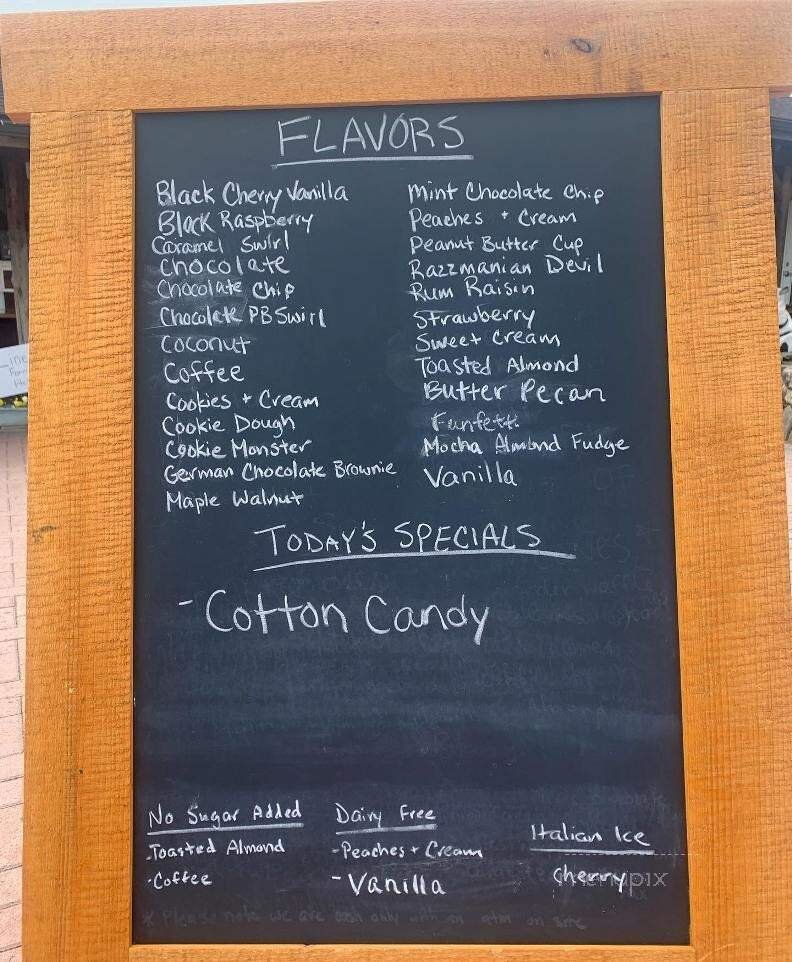 FLAVORS
Black Cherry Vanilla
Black Raspberry
Caramel Swirl
Chocolate
Chocolate Chip
Chocolate PB Swirl
Coconut
Coffee
Cookies + Cream
Cookie Dough
Cookie Monster
German Chocolate Brownie
Maple Walnut
Mint Chocolate Chip
Peaches + Cream
Peanut Butter Cup
Razzmanian Devil
Rum Raisin
Strawberry
Sweet Cream
Toasted Almond
Butter Pecan
Funfetti
Mocha Almond Fudge
Vanilla
TODAY'S SPECIALS
- Cotton Candy
No Sugar Added
-Toasted Almond
-Coffee
Dairy Free
-Peaches + Cream
-Vanilla
Italian Ice
Cherry
menupix
* Please note we are cash only with an atm on site